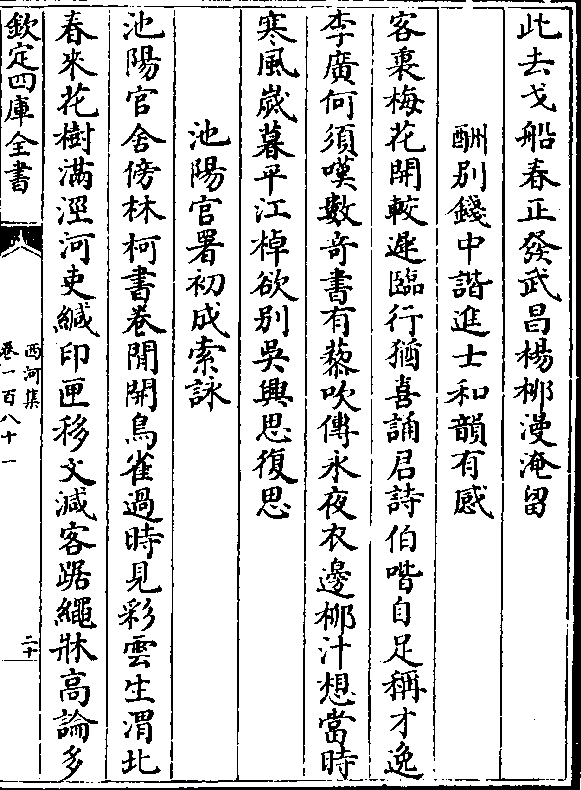 此去戈船春正發武昌楊栁漫淹留
酬别錢中諧進士和韻有感
客裏梅花開較遲臨行猶喜誦君詩伯喈自足稱才逸
李廣何須嘆數竒書有藜吹傳永夜衣邊栁汁想當時
寒風嵗暮平江棹欲别吳興思復思
池陽官署初成索詠
池陽官舍傍林柯書卷閒開鳥雀過時見彩雲生渭北
春來花樹滿涇河吏緘印匣移文減客踞繩牀高論多
欽定四庫全書
西河集
卷一百八十一
二十